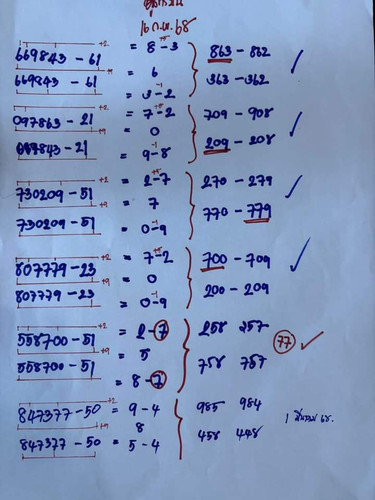 16 ก.พ. 68
+2 +5
669843 - 61 = 8 - 3 863 - 862
+9
669843 - 61 = 6 363 - 362
-1
= 3 - 2
+2 +5
097863 - 21 = 7 - 2 709 - 908
+9
097843 - 21 = 0 209 - 208
-1
= 9 - 8
+2 +5
730209 - 51 = 2 - 7 270 - 279
+9
730209 - 51 = 7 770 - 779
-1
= 0 - 9
+2 +5
807779 - 23 = 7 - 2 700 - 709
+9
807779 - 23 = 0 200 - 209
-1
= 0 - 9
+2
558700 - 51 = 2 - 7 258 257
+9 77
558700 - 51 = 5 758 757
= 8 - 7
+2
847377 - 50 = 9 - 4 985 984
+9
8 1 มีนาคม 68.
847377 - 50 = 5 - 4 458 448